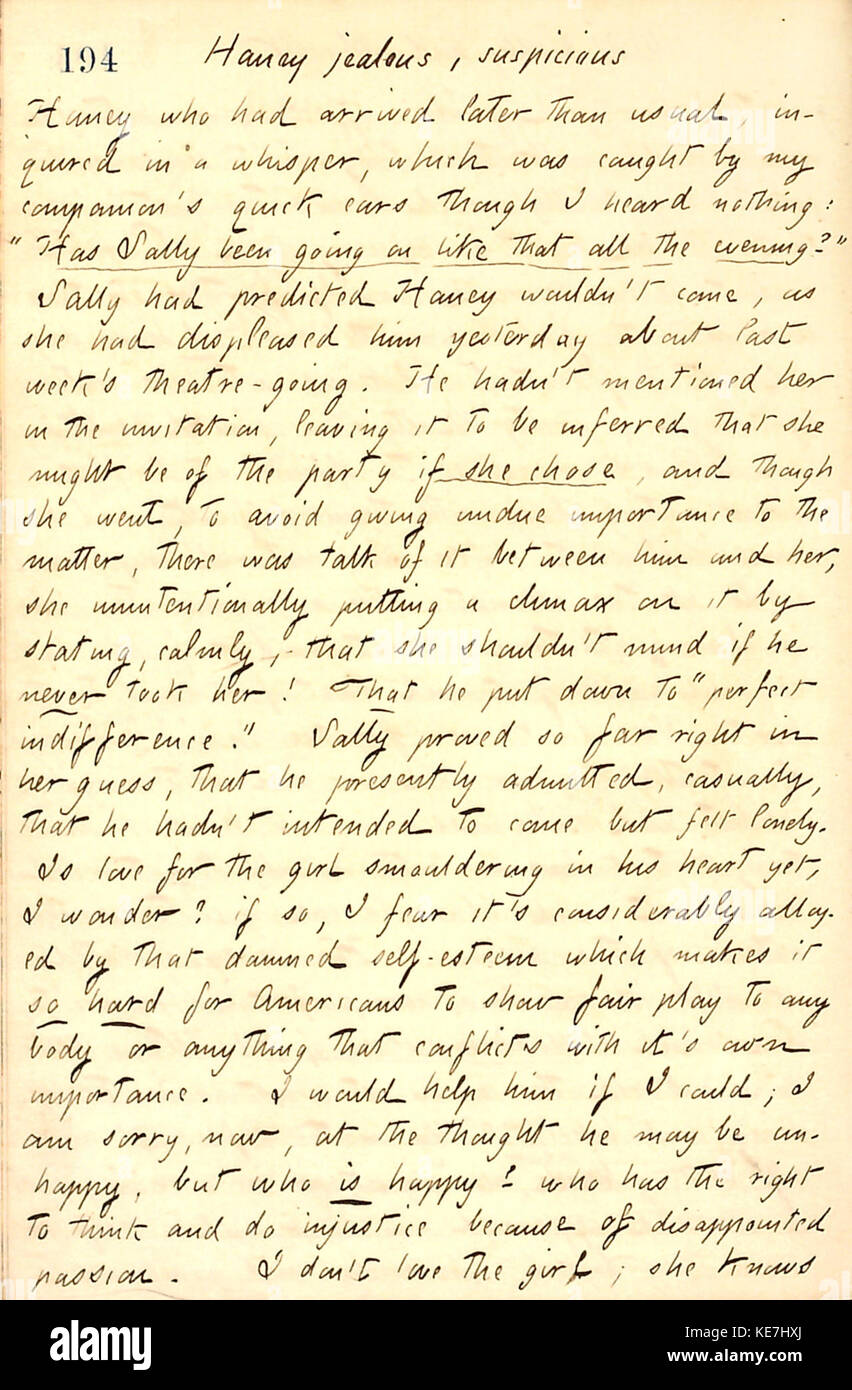 194 Haney jealous, suspicious
Haney who had arrived later than usual, in-
quired in a whisper, which was caught by my
companion's quick ears though I heard nothing:
"Has Sally been going on like that all the evening?"
Sally had predicted Haney wouldn't come, as
she had displeased him yesterday about last
week's theatre-going. He hadn't mentioned her
in the invitation, leaving it to be inferred that she
might be of the party if she chose, and though
she went, to avoid giving undue importance to the
matter, there was talk of it between him and her,
she unintentionally putting a climax on it by
stating, calmly, that she shouldn't mind if he
never took her! That he put down to "perfect
indifference." Sally proved so far right in
her guess, that he presently admitted, casually,
that he hadn't intended to come but felt lonely.
Is love for the girl smouldering in his heart yet,
I wonder? if so, I fear it's considerably alloy-
ed by that damned self-esteem which makes it
so hard for Americans to show fair play to any
body or anything that conflicts with it's own
importance. I would help him if I could; I
am sorry, now, at the thought he may be un-
happy, but who is happy? who has the right
to think and do injustice because of disappointed
passion. I don't love the girl; she knows
alamy
Image ID: KE7HXJ
www.alamy.com